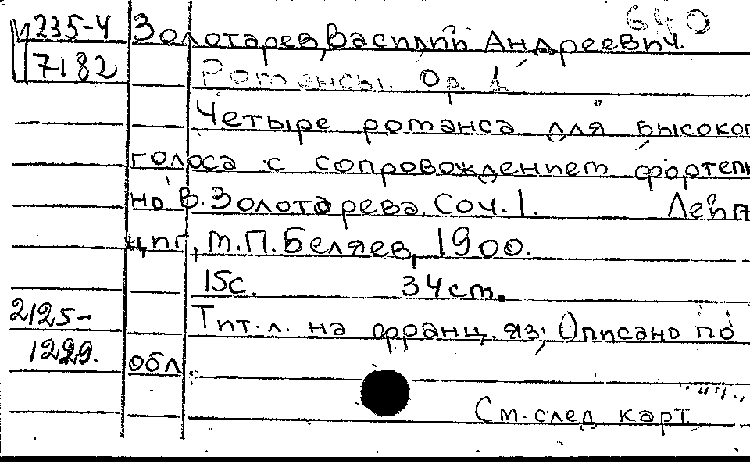 640
235-4 Золотарев, Василий Андреевич.
7182 Романсы. Ор. 1
Четыре романса для высоког
голоса с сопровождением фортепи
но В. Золотарева. Соч. 1. Лейп
циг, М.П. Беляев, 1900.
15с. 34см.
2125- Тит. л. на франц. яз; Описано по
1229. обл.
См. след карт.